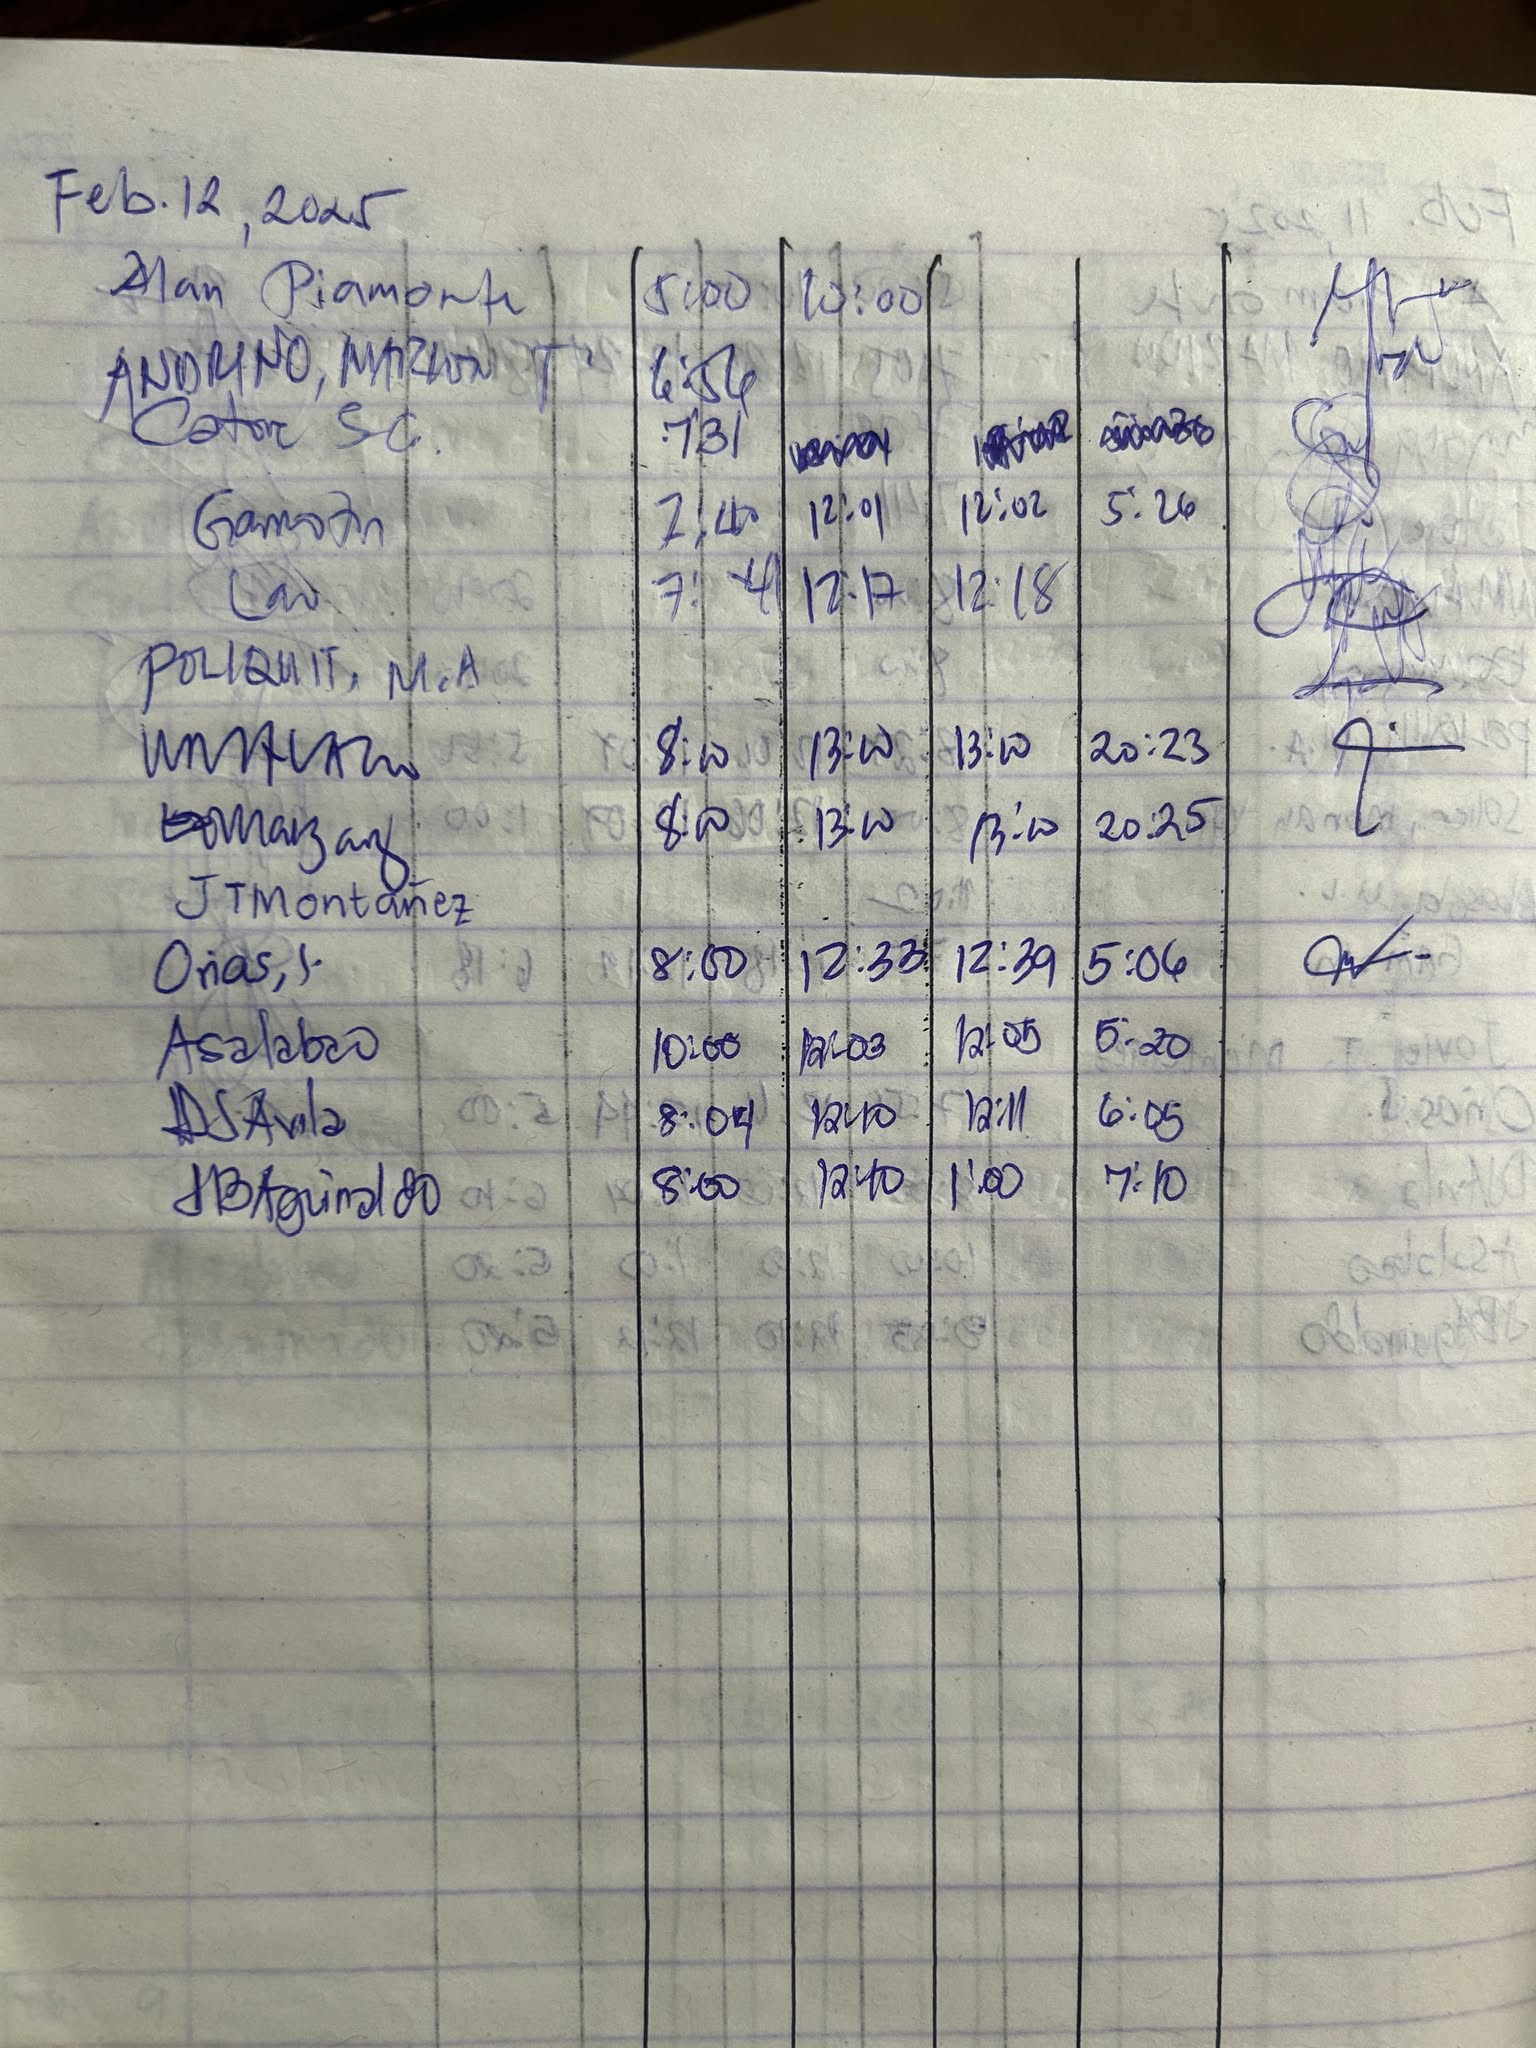 Feb. 12, 2025
Alan Piamonte 5:00 10:00
ANDRINO, MARLON T 6:56
Cator S.C. 731
7:40 12:01 12:02 5:26
Lao 7:41 12:17 12:18
POLIQUIT, M.A
8:10 13:10 13:10 20:23
8:10 13:10 13:10 20:25
JTMontañez
Oñas, J. 8:00 12:33 12:39 5:06
Asalabao 10:00 12:03 12:05 5:20
DSAvila 8:04 12:10 12:11 6:05
JBAguinaldo 8:00 12:40 1:00 7:10